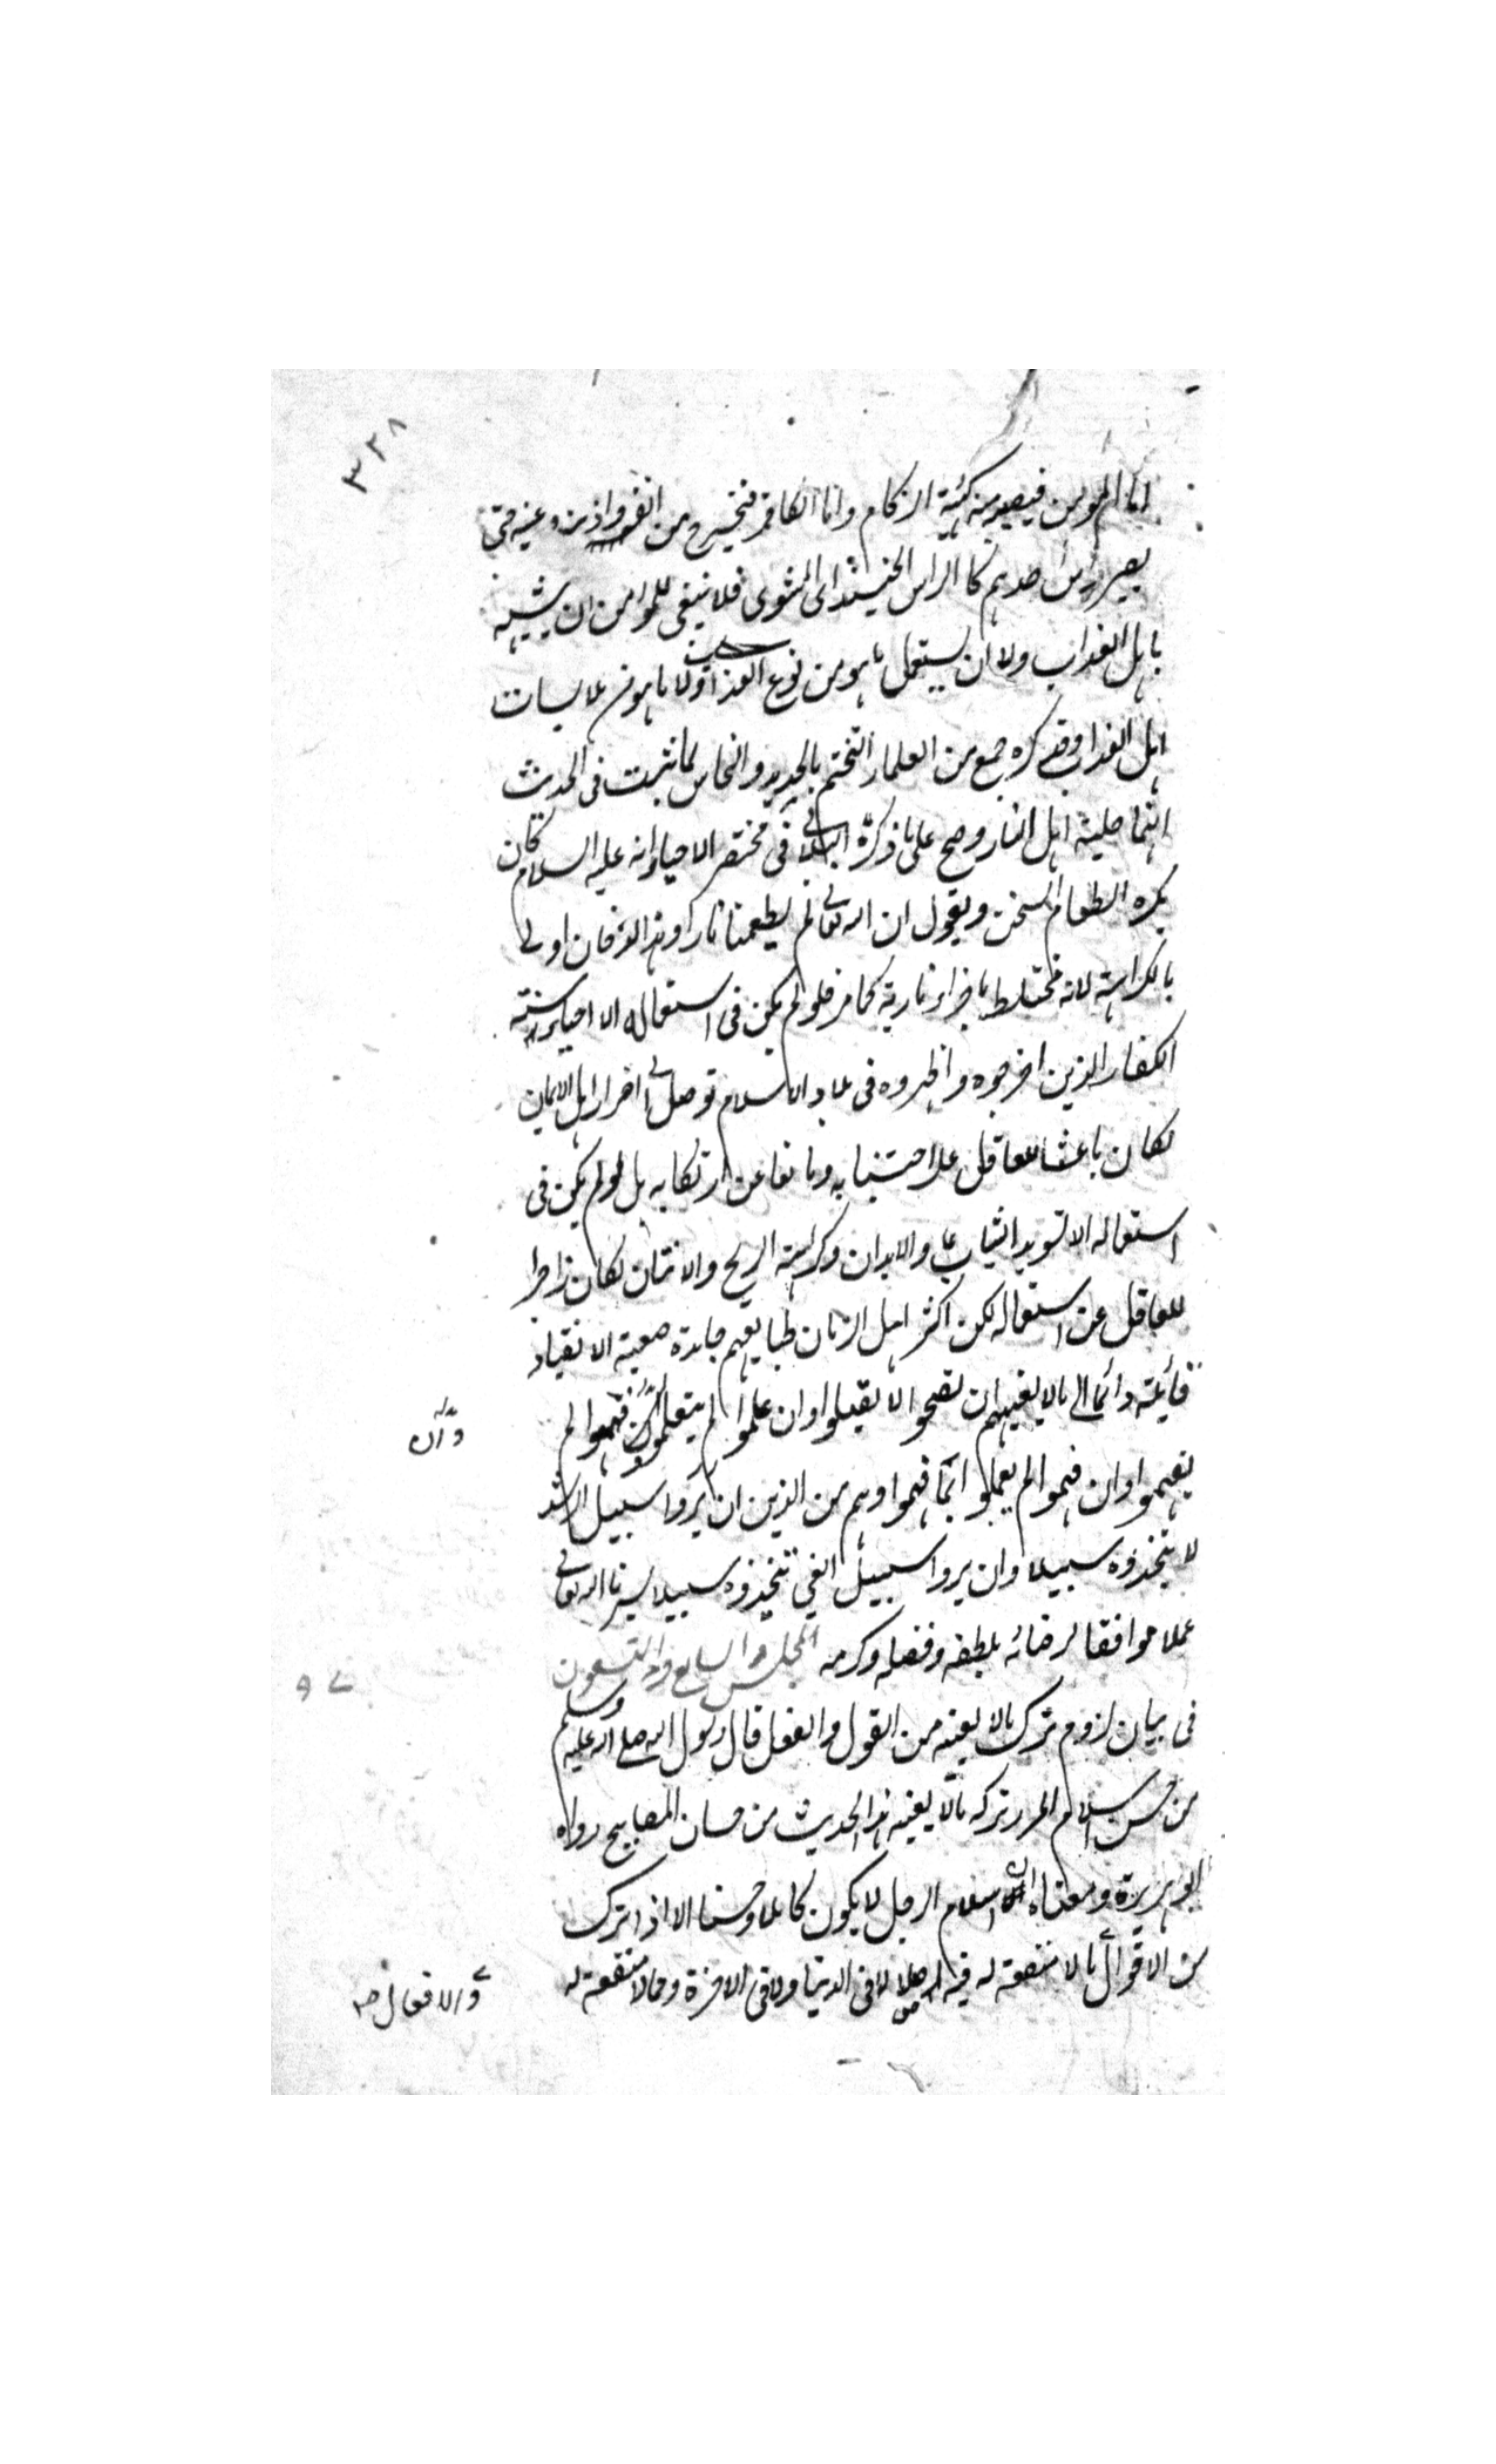 ٣٣٨
اما المؤمن فيصيبه منه كهيئة الزكام واما الكافر فيخرج من انفه واذنه وعينه حتى
يصير راس احدهم كالراس الحنيذ اى المشوى فلا ينبغى للمؤمن ان يتشبه
باهل العذاب ولا ان يستعمل ما هو من نوع العذاب ولا ما هو من ملابسات
اهل العذاب وقد كره جمع من العلماء التختم بالحديد والنحاس لما ثبت فى الحديث
انهما حلية اهل النار وصح على ما ذكره البلالى فى مختصر الاحياء انه عليه السلام كان
يكره الطعام السخن ويقول ان الله تعالى لم يطعمنا نارا وهذا الدخان اولى
بالكراهة لانه مختلط باجزاء نارية كما مر فلو لم يكن فى استعماله الا احياء سنة
الكفار الذين اخرجوه واظهروه فى بلاد الاسلام توصلا الى اضرار اهل الايمان
لكان باعثا للعاقل على اجتنابه ومانعا عن ارتكابه بل لو لم يكن فى
استعماله الا تسويد الثياب والابدان وكراهة الريح والانتان لكان زاجرا
للعاقل عن استعماله لكن اكثر اهل الزمان طبايعهم جامدة صعبة الانقياد
مائلة دائما الى ما لا يعنيهم ان نصحوا لا يقبلوا وان علموا لم يتعلموا وان فهموا لم
وان
يفهموا وان فهموا لم يعملوا بما فهموا وهم من الذين ان يروا سبيل الرشد
لا يتخذوه سبيلا وان يروا سبيل الغى يتخذوه سبيلا يسرنا الله تعالى
عملا موافقا لرضائه بلطفه وفضله وكرمه المجلس السابع والتسعون
٩٧
فى بيان لزوم ترك ما لا يعنيه من القول والفعل قال رسول الله صلى الله عليه وسلم
من حسن اسلام المرء تركه ما لا يعنيه هذا الحديث من حسان المصابيح رواه
ابو هريرة ومعناه ان اسلام الرجل لا يكون كاملا وحسنا الا اذا ترك
من الاقوال ما لا منفعة له فيه اصلا لا فى الدنيا ولا فى الاخرة ومما لا منفعة له
والافعال صح